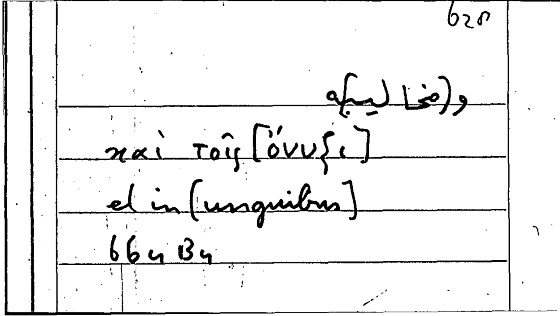 و(مخاليب)ه
καὶ τοῖς [ὄνυξι]
et in [unguibus]
664 B4